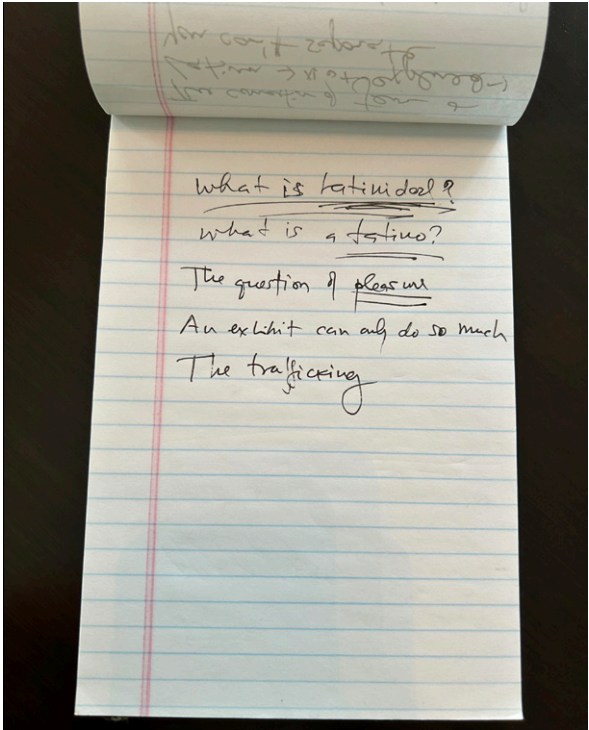 you can't separate
The
What is latinidad?
What is a Latino?
The question of pleasure
An exhibit can only do so much
The trafficking